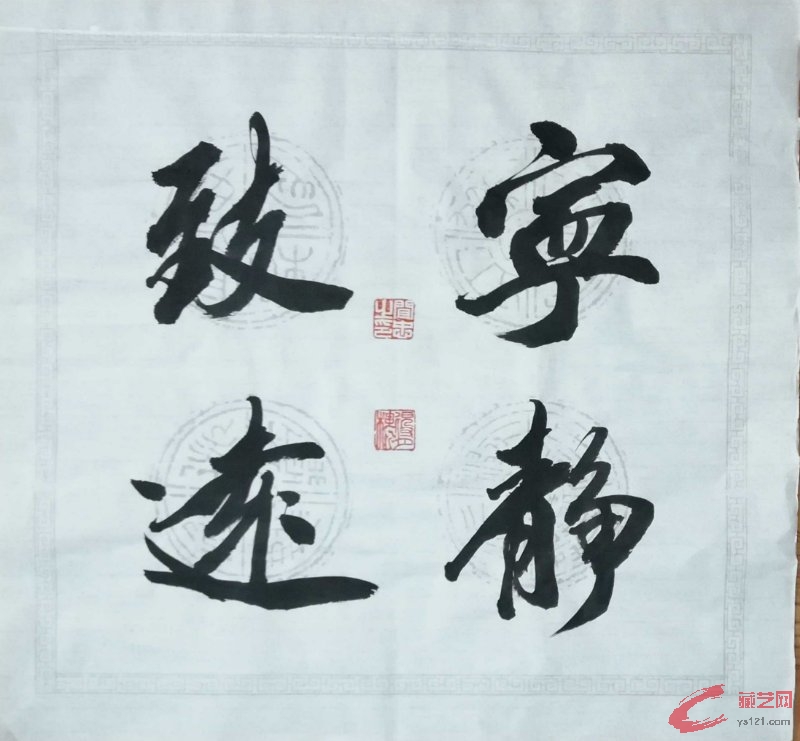 寧靜
致遠
藏艺网
ys121.com